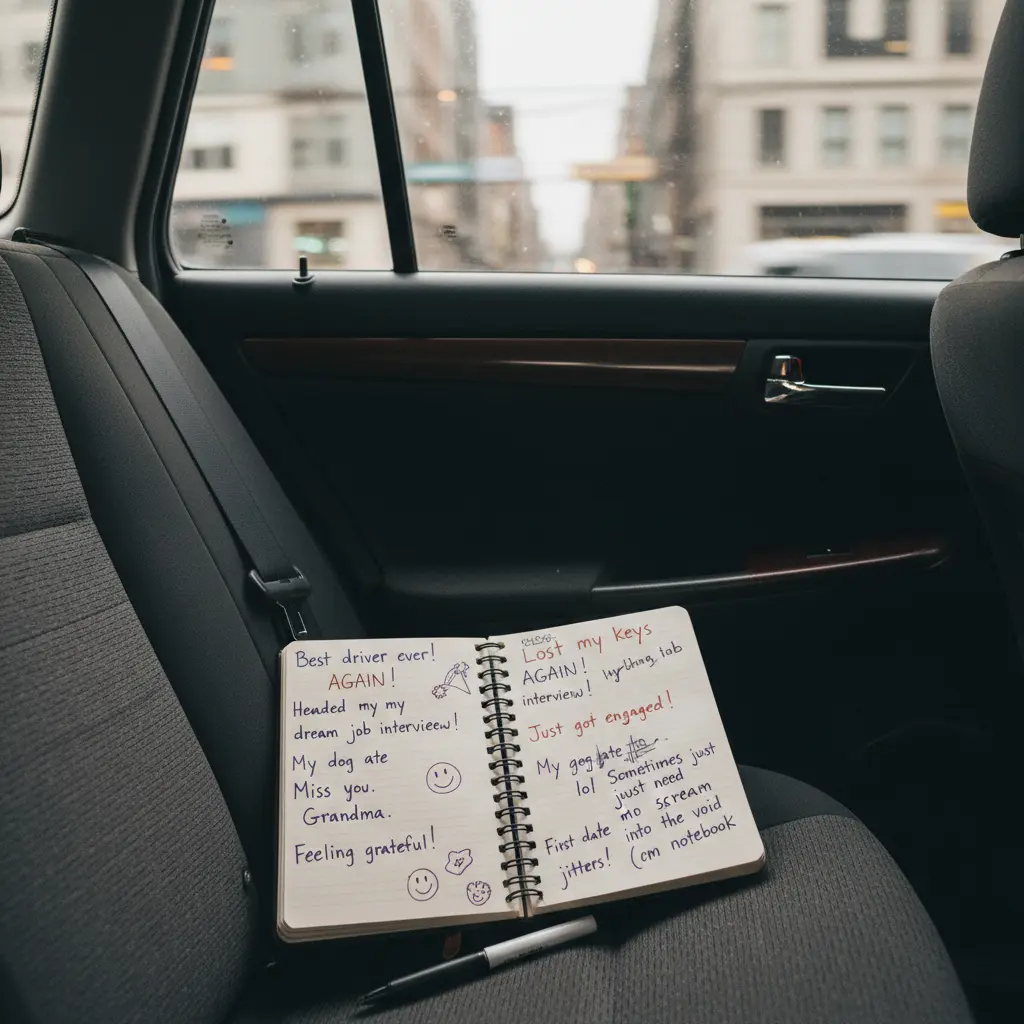 Best driver ever!
AGAIN!
Headed my my
dream job interview!
My dog ate
Miss you.
Grandma.
Feeling grateful!
Lost my keys
AGAIN!
interview!
Just got engaged!
My
lol Sometimes just
just need
mo scream
into the void
(cm notebook
First date
jitters!